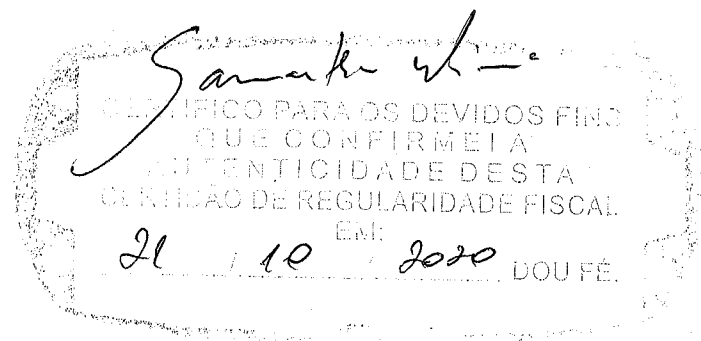 CERTIFICO PARA OS DEVIDOS FINS
QUE CONFIRMEI A
AUTENTICIDADE DESTA
CERTIDÃO DE REGULARIDADE FISCAL
EM:
21 / 10 / 2020 DOU FÉ.